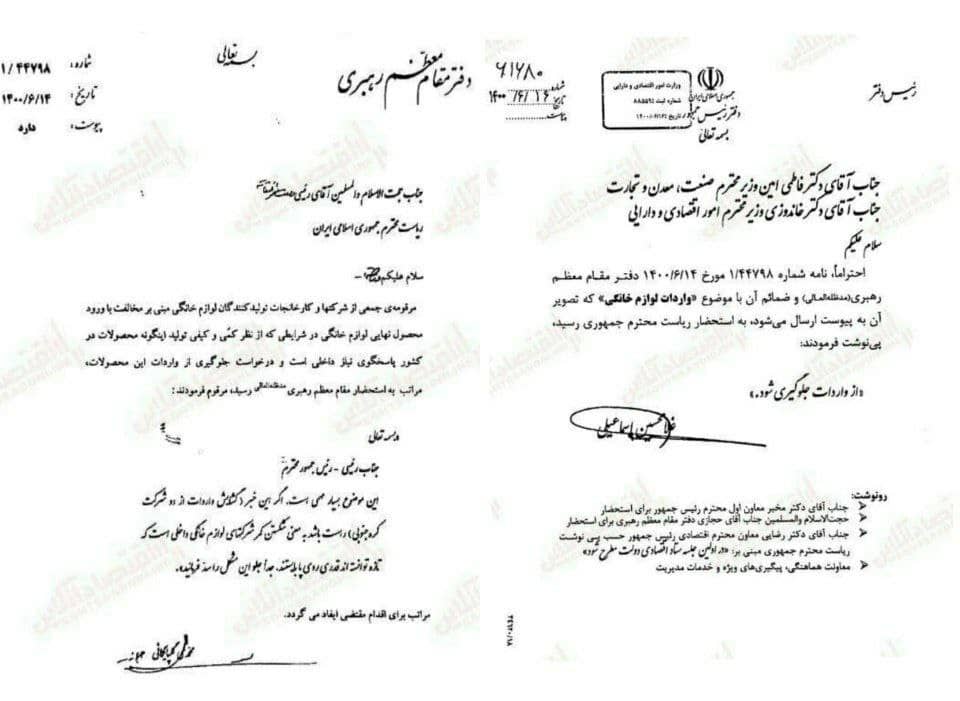 رئیس دفتر
جمهوری اسلامی ایران
دفتر رئیس جمهور
بسمه تعالی
وزارت امور اقتصادی و دارایی
شماره ثبت
تاریخ
شماره:
۶۱۶۸۰
تاریخ:
۱۴۰۰/۶/۱۶
پیوست:
جناب آقای دکتر فاطمی امین وزیر محترم صنعت، معدن و تجارت
جناب آقای دکتر خاندوزی وزیر محترم امور اقتصادی و دارایی
سلام علیکم
احتراماً، نامه شماره ۱/۴۴۷۹۸ مورخ ۱۴۰۰/۶/۱۴ دفتر مقام معظم
رهبری(مدظله‌العالی) و ضمائم آن با موضوع «واردات لوازم خانگی» که تصویر
آن به پیوست ارسال می‌شود، به استحضار ریاست محترم جمهوری رسید،
پی‌نوشت فرمودند:
«از واردات جلوگیری شود.»
غلامحسین اسماعیلی
رونوشت:
جناب آقای دکتر مخبر معاون اول محترم رئیس جمهور برای استحضار
حجت‌الاسلام والمسلمین جناب آقای حجازی دفتر مقام معظم رهبری برای استحضار
جناب آقای دکتر رضایی معاون محترم اقتصادی رئیس جمهور حسب پی نوشت
ریاست محترم جمهوری مبنی بر: «در اولین جلسه ستاد اقتصادی دولت مطرح شود»
معاونت هماهنگی، پیگیری‌های ویژه و خدمات مدیریت
بسمه تعالی
دفتر مقام معظم رهبری
شماره: ۱/۴۴۷۹۸
تاریخ: ۱۴۰۰/۶/۱۴
پیوست: دارد
جناب حجت الاسلام والمسلمین آقای رئیسی
ریاست محترم جمهوری اسلامی ایران
سلام علیکم
مرقومه‌ی جمعی از شرکتها و کارخانجات تولیدکنندگان لوازم خانگی مبنی بر مخالفت با ورود
محصول نهایی لوازم خانگی در شرایطی که از نظر کمّی و کیفی تولید اینگونه محصولات در
کشور پاسخگوی نیاز داخلی است و درخواست جلوگیری از واردات این محصولات،
مراتب به استحضار مقام معظم رهبری مدظله‌العالی رسید، مرقوم فرمودند:
بسمه تعالی
جناب رئیسی - رئیس جمهور محترم
این موضوع بسیار مهمی است. اگر این خبر (گشایش واردات از دو شرکت
کره جنوبی) راست باشد به معنی شکستن کمر شرکتهای لوازم خانگی داخلی است که
تازه توانسته اند قدری روی پا بایستند. جداً جلو این مشکل را سد فرمائید.
مراتب برای اقدام مقتضی ایفاد می گردد.
محمدی گلپایگانی
اقتصادآنلاین